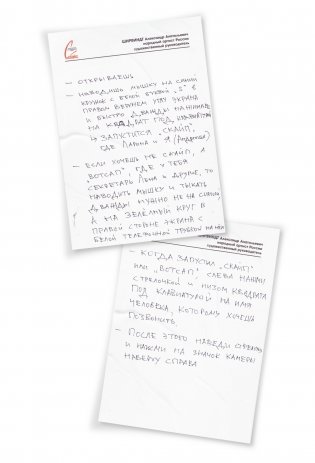 ШИРВИНДТ Александр Анатольевич
народный артист России
художественный руководитель
— ОТКРЫВАЕШЬ
— НАВОДИШЬ МЫШКУ НА СИНИЙ
КРУЖОК С БЕЛОЙ БУКВОЙ „S" В
ПРАВОМ ВЕРХНЕМ УГЛУ ЭКРАНА
И БЫСТРО ДВАЖДЫ НАЖИМАЕШЬ
НА КВАДРАТ ПОД КЛАВИАТУРОЙ
→ ЗАПУСТИТСЯ „СКАЙП",
ГДЕ ЛАРИНА И Я (АНДРЮША)
— ЕСЛИ ХОЧЕШЬ НЕ СКАЙП, А
„ВОТСАП", ГДЕ У ТЕБЯ
СЕКРЕТАРЬ ЛЕНА И ДРУГИЕ, ТО
НАВОДИТЬ МЫШКУ И ТЫКАТЬ
ДВАЖДЫ НУЖНО НЕ НА СИНИЙ,
А НА ЗЕЛЕНЫЙ КРУГ В
ПРАВОЙ СТОРОНЕ ЭКРАНА С
БЕЛОЙ ТЕЛЕФОННОЙ ТРУБКОЙ НА НЕМ
ШИРВИНДТ Александр Анатольевич
народный артист России
художественный руководитель
КОГДА ЗАПУСТИЛ „СКАЙП"
ИЛИ „ВОТСАП", СЛЕВА НАЖМИ
СТРЕЛОЧКОЙ И НИЗОМ КВАДРАТА
ПОД КЛАВИАТУРОЙ НА ИМЯ
ЧЕЛОВЕКА, КОТОРОМУ ХОЧЕШЬ
ПОЗВОНИТЬ.
— ПОСЛЕ ЭТОГО НАВЕДИ СТРЕЛКУ
И НАЖМИ НА ЗНАЧОК КАМЕРЫ
НАВЕРХУ СПРАВА